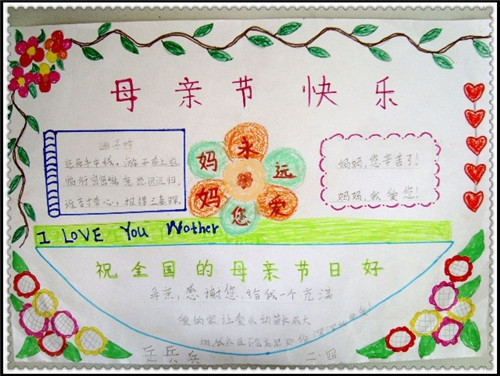 母亲节快乐
游子吟
慈母手中线，游子身上衣
临行密密缝，意恐迟迟归，
谁言寸草心，报得三春晖。
永远爱您妈妈
妈妈，您辛苦了！
妈妈，我爱您！
I LOVE You Mother
祝全国的母亲节日好
母亲，感谢您，给我一个充满
爱的家让我从幼苗长大